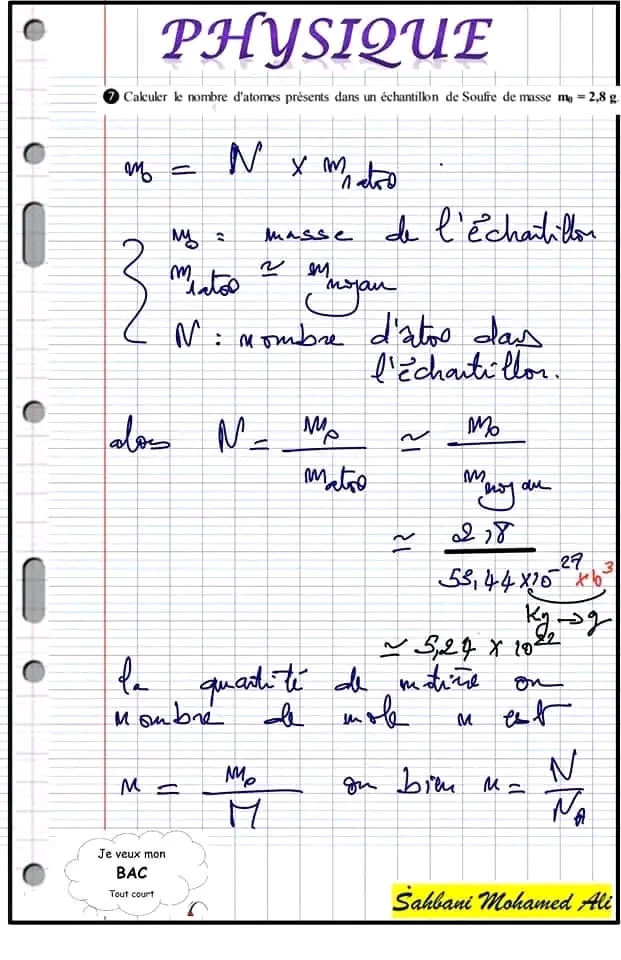 PHYSIQUE
7 Calculer le nombre d'atomes présents dans un échantillon de Soufre de masse m₀ = 2,8 g.
m₀ = N × m 1 atome
m₀ : masse de l'échantillon
m 1 atome ≃ m noyau
N : nombre d'atome dans
l'échantillon.
alors N = m₀ / m atome ≃ m₀ / m noyau
≃ 2,8 / 53,44 × 10⁻²⁷ × 10³
Kg → g
≃ 5,24 × 10²²
la quantité de matière ou
nombre de mole n est
n = m₀ / M ou bien n = N / N_A
Je veux mon
BAC
Tout court
Sahbani Mohamed Ali